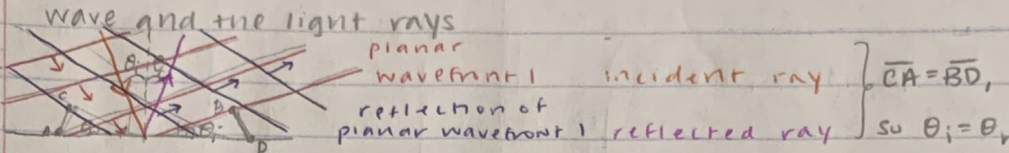 wave and the light rays
planar
wavefront 1 incident ray
CA = BD,
reflection of
planar wavefront 1 reflected ray
so θi = θr
C
D